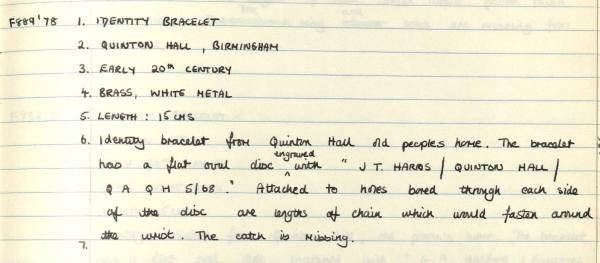 F889'78 1. IDENTITY BRACELET
2. QUINTON HALL, BIRMINGHAM
3. EARLY 20th CENTURY
4. BRASS, WHITE METAL
5. LENGTH: 15 CMS
6. Identity bracelet from Quinton Hall old peoples home. The bracelet
has a flat oval disc engraved with " J T. HARRIS / QUINTON HALL /
Q A Q H 5/68." Attached to holes bored through each side
of the disc are lengths of chain which would fasten around
the wrist. The catch is missing.
7.